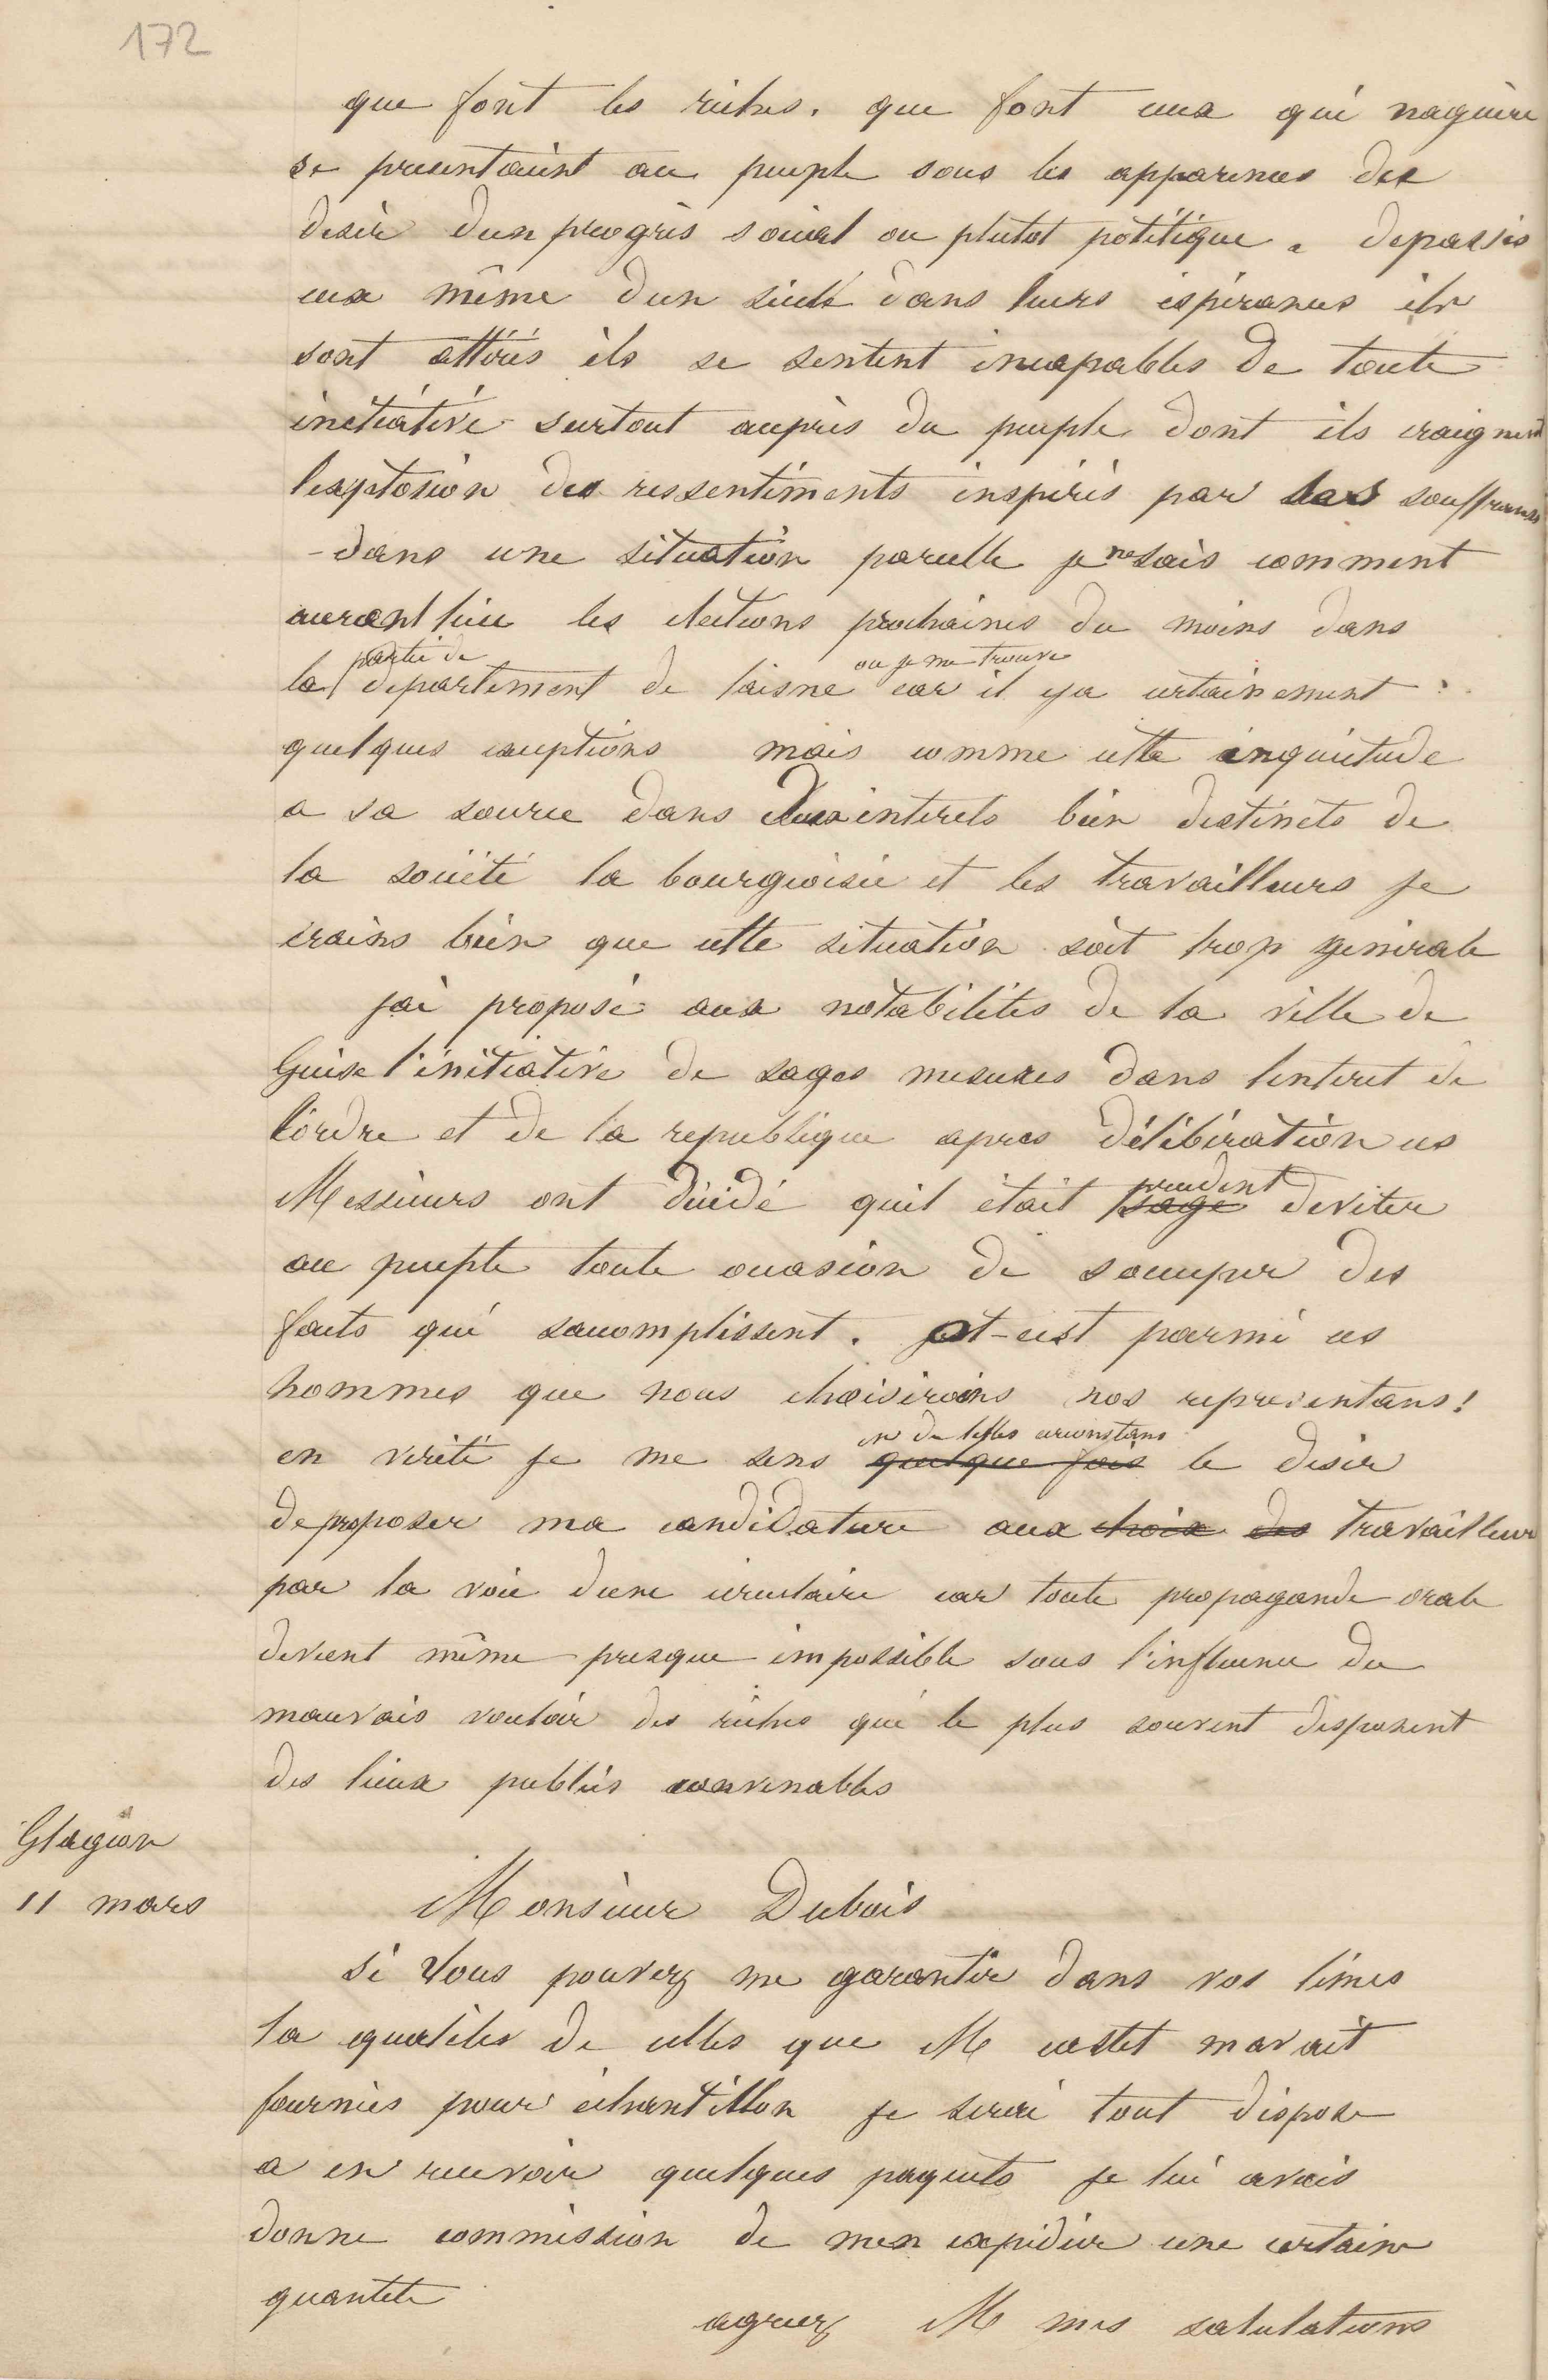 172
que font les riches. que font ceux qui naguère
se presentaient au peuple sous les apparences des
desir d'un progrès social ou plutot politique. depassés
eux même dun siecle dans leurs espérances ils
sont attérés ils se sentent incapables de toute
initiative surtout auprès du peuple dont ils craignent
lexplosion des ressentiments inspirés par ses souffrances
- dans une situation pareille je ne sais comment
auront lieu les elections prochaines du moins dans
la partie de departement de laisne ou je me trouve car il ya certainement
quelques exceptions mais comme cette inquietude
a sa source dans deux interets bien distincts de
la société la bourgeoisie et les travailleurs je
crains bien que cette situation soit trop generale
jai proposé aux notabilites de la ville de
Guise l'initiative de sages mesures dans linteret de
lordre et de la republique apres délibération ces
Messieurs ont décidé quil était sage prudent deviter
au peuple toute occasion de soccuper des
faits qui saccomplissent. et cest parmi ces
hommes que nous choisirions nos representans!
en verité je me sens quelque fois en de telles circonstans le desir
de proposer ma candidature aux choix des travailleurs
par la voie dune circulaire car toute propagande orale
devient même presque impossible sous l'influence du
mauvais vouloir des riches qui le plus souvent disposent
des lieux publics convenables
Glageon
11 mars
Monsieur Dubois
si Vous pouvez me garantir dans vos limes
la qualités de celles que M castet mavait
fournies pour échantillon je serai tout dispose
a en recevoir quelques paquets je lui avais
donne commission de men expédier une certaine
quantite
agreez M mes salutations